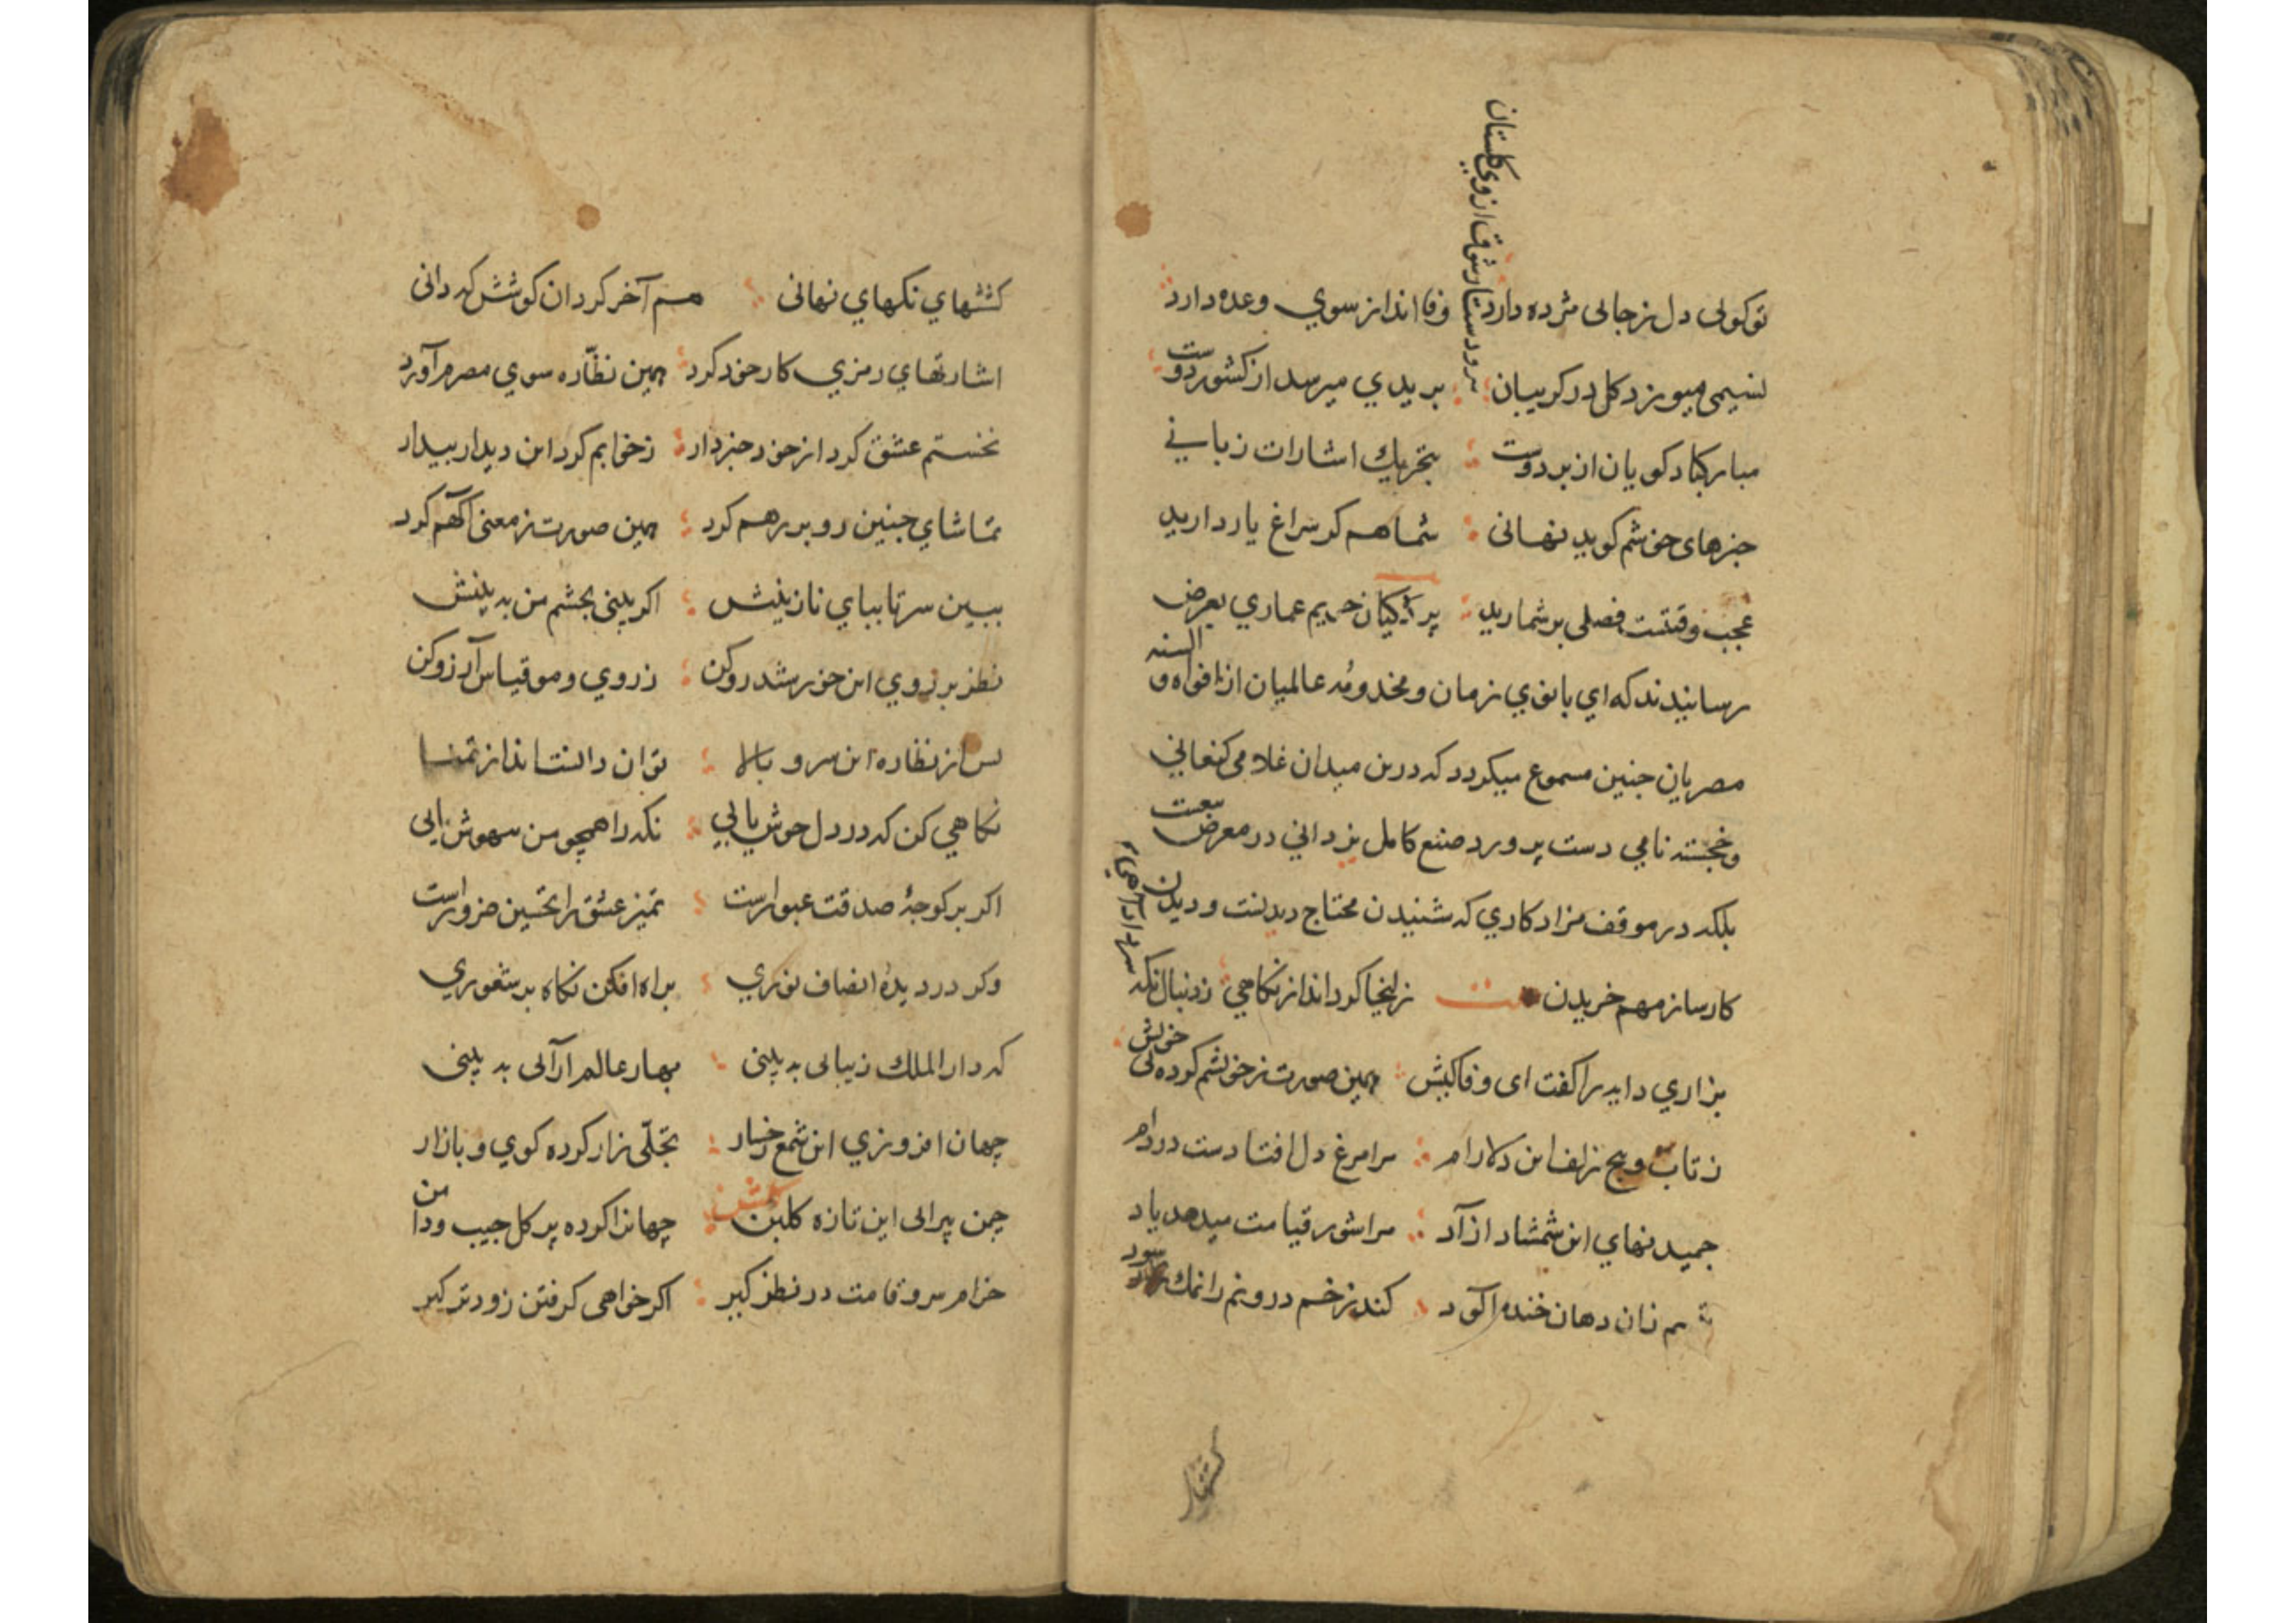 تو کولی دل زجالی مژده دارد وفا انداز سوي وعده دارد
برود ستار شوق از وي کلستان
نسیمی میوزد کل در کریبان بریدي میرسد از کشور دوست
مبارکباد کویان از بر دوست بتحریك اشارات زبانی
خبرهای خوشم کوید نهانی شما هم کر سراغ یار دارید
عجب وقتست فصلی بر شمارید پردکیان حریم عماري بعرض
رسانیدند که اي بانوي زمان و مخدومهٔ عالمیان از افواه و السنه
مصریان چنین مسموع میکردد که درین میدان غلامی کنعانی
و خجسته نامی دست پرورد صنع کامل یزدانی در معرض بیعست
بلکه در موقف مزاد کاري که شنیدن محتاج دیدنست و دیدن
کارساز مهم خریدن زلیخا کرد انداز نکاهي ز دنبال نکه
بزاري دایه را کفت ای وفا کیش همین صورت ز خویشم کرده بی خویش
ز تاب و پیچ زلف این دلارام مرا مرغ دل افتادست در دام
چمیدنهاي این شمشاد آزاد مرا شور قیامت میدهد یاد
زان دهان خنده آلود کند زخم درونم را نمك سود
کششهاي نکهاي نهانی هم آخر کرد ان کوشش که دانی
اشارتهاي رمزي کار خود کرد همین نظّاره سوي مصرم آورد
نخستم عشق کرد از خود خبردار ز خوابم کرد این دیدار بیدار
تماشاي چنین رو بر رهم کرد همین صورت ز معنی آکهم کرد
ببین سر تا بپاي نازنینش اکر بینی بچشم من ببینش
نظر بر روي این خورشید رو کن ز روي و مو قیاس آرزو کن
پس از نظاره این سرو بالا توان دانست انداز تمنا
نکاهي کن که در دل جوش یابي نکه را همچو من بیهوش یابی
اکر بر کوچهٔ صدقت عبورست تمیز عشق را تحسین ضرورست
وکر در دیدهٔ انصاف نوري براه افکن نکاه پر شعوري
که دار الملك زیبایی ببینی بهار عالم ارآیی ببینی
جهان افروزي این شمع رخسار تجلّی زار کرده کوي و بازار
چمن پیرایی این تازه کلبن جهانرا کرده پر کل جیب و دامن
خرام سرو قامت در نظر کیر اکر خواهی کرفتن زودتر کیر